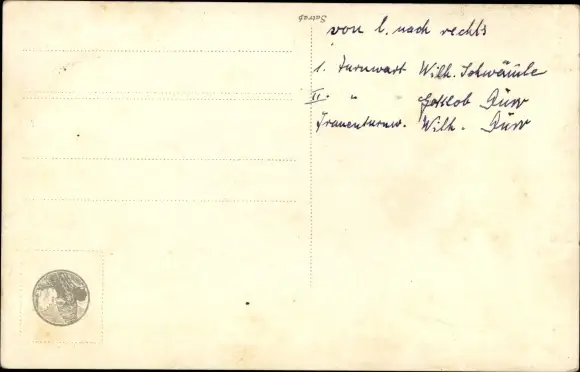 Satrap
von l. nach rechts
1. Turnwart Wilh. Schwäible
II. " Gottlob Dürr
Frauenturnw. Wilh. Dürr